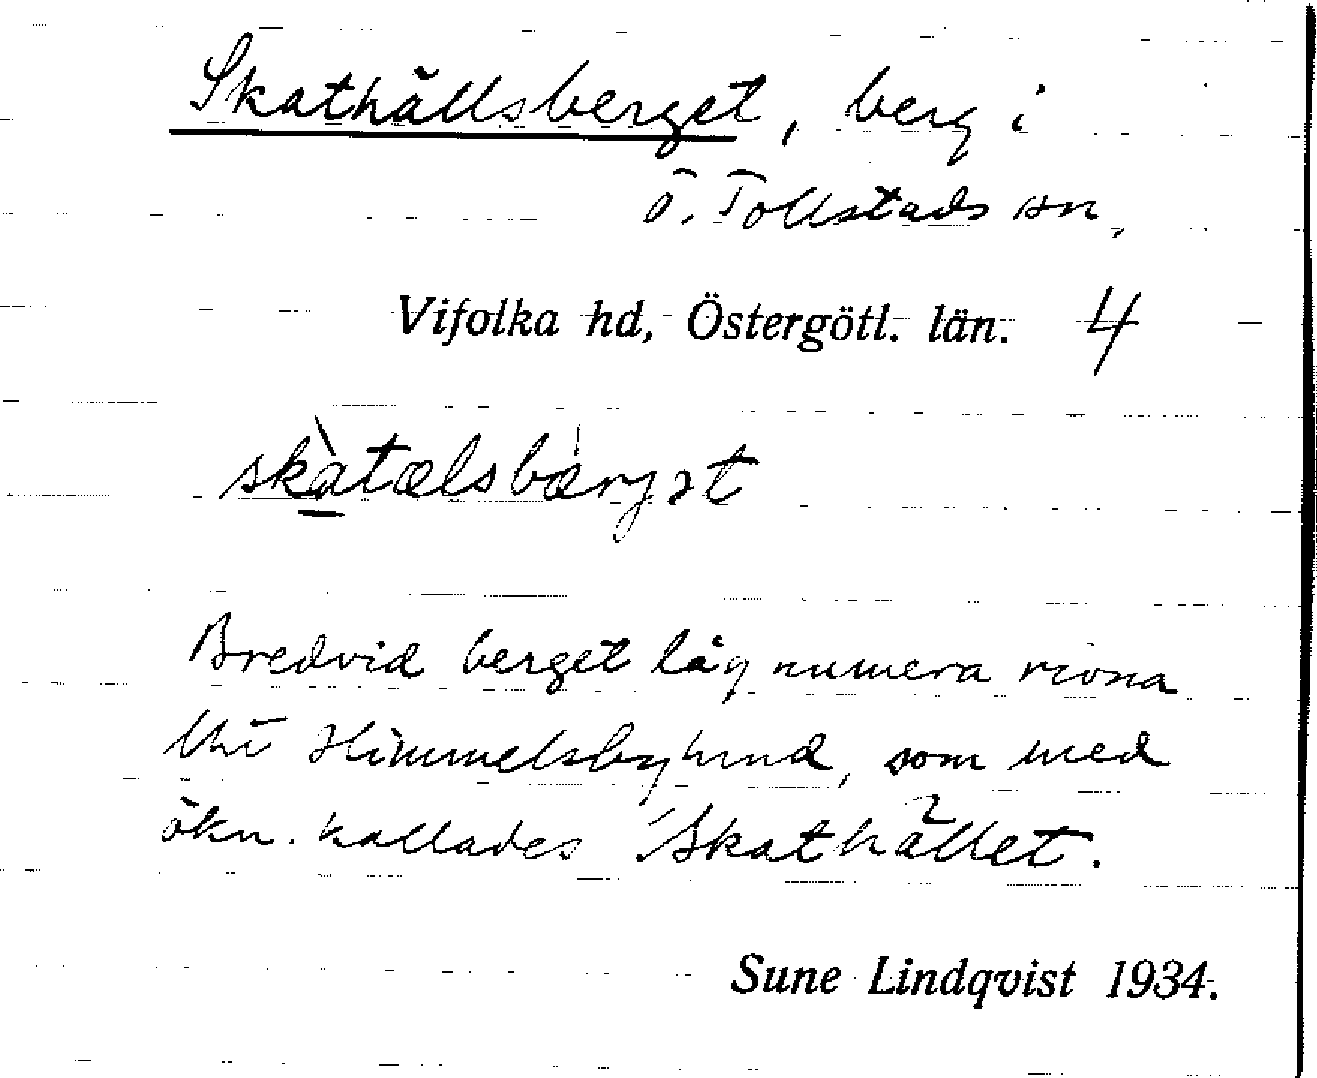 Skathällsberget, berg i
Ö. Tollstads sn,
Vifolka hd, Östergötl. län. 4
skàtælsbærjət
Bredvid berget låg numera rivna
Himmelsbyhund, som med
ökn. kallades Skathället.
Sune Lindqvist 1934.